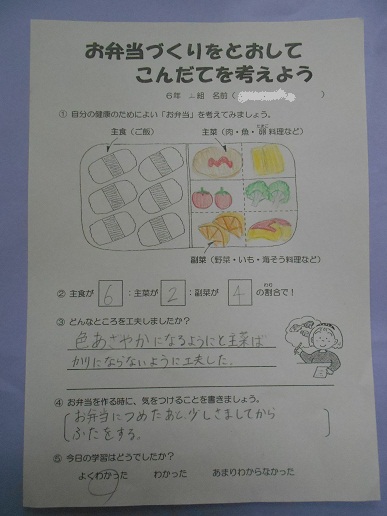 お弁当づくりをとおして
こんだてを考えよう
6年 二組 名前（　　　）
① 自分の健康のためによい「お弁当」を考えてみましょう。
主食（ご飯） 主菜（肉・魚・卵料理など）
副菜（野菜・いも・海そう料理など）
② 主食が 6 : 主菜が 2 : 副菜が 4 の割合で！
③ どんなところを工夫しましたか？
色あざやかになるようにと主菜ば
かりにならないように工夫した。
④ お弁当を作る時に、気をつけることを書きましょう。
お弁当につめたあと、少しさましてから
ふたをする。
⑤ 今日の学習はどうでしたか？
よくわかった わかった あまりわからなかった